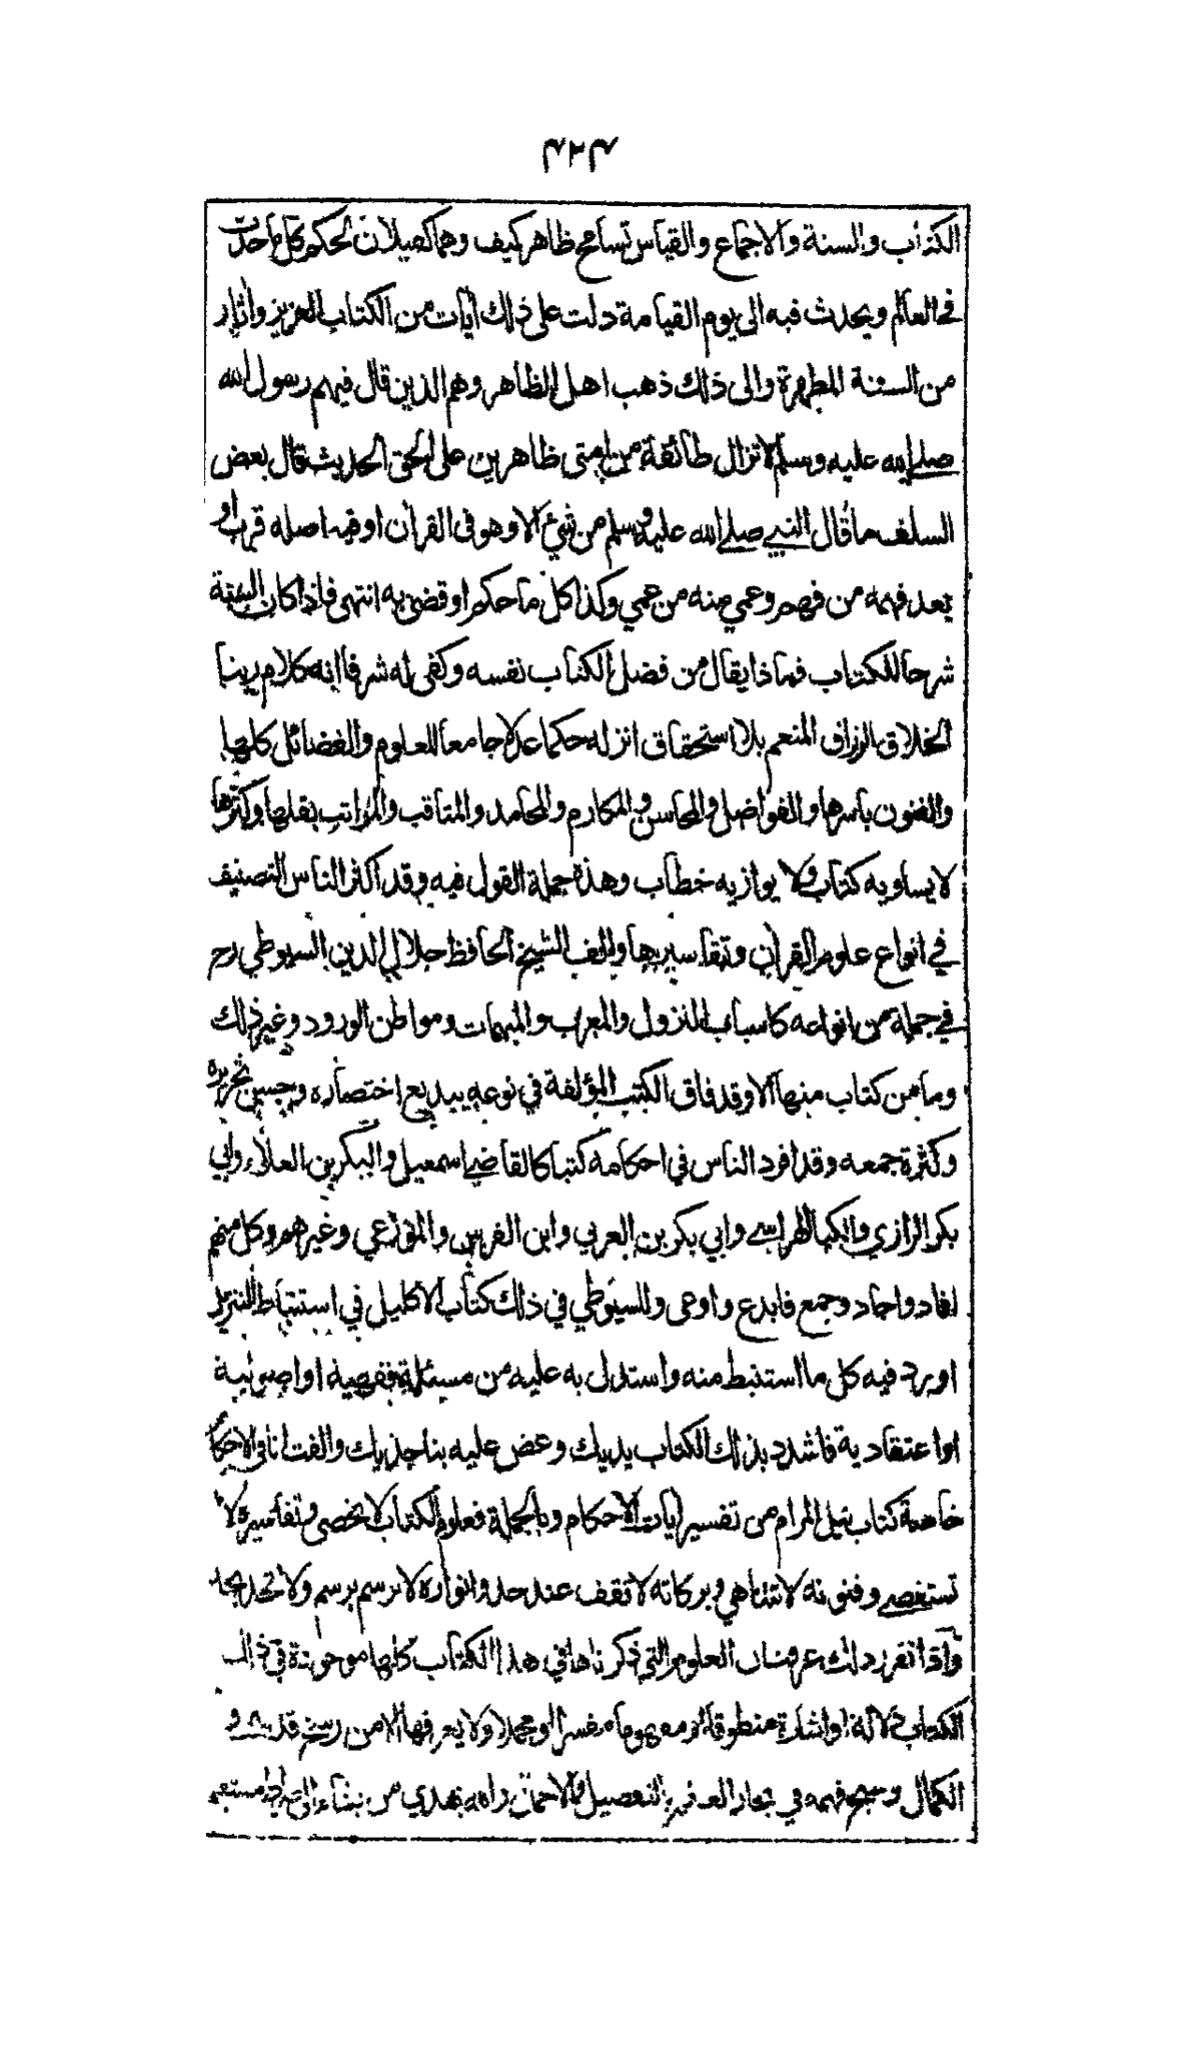 ٤٢٣
الكتاب والسنة والاجماع والقياس تسامح ظاهر كيف وهما كفيلان لحكم كل ما حدث
في العالم ويحدث فيه الى يوم القيامة دلت على ذلك آيات من الكتاب العزيز واثار
من السنة المطهرة والى ذلك ذهب اهل الظاهر وهم الذين قال فيهم رسول الله
صلے الله عليه وسلم لا تزال طائفة من امتى ظاهرين على الحق الحديث قال بعض
السلف ما قال النبي صلے الله عليه وسلم من شئ الا وهو فى القرآن او فيه اصله قرب او
بعد فهمه من فهم وعمي منه من عمي وكذا كل ما حكم او قضى به انتهى فاذا كان السنة
شرحا للكتاب فماذا يقال من فضل الكتاب نفسه وكفى له شرفا انه كلام ربنا
الخلاق الرزاق المنعم بلا استحقاق انزله حكما عدلا جامعا للعلوم والفضائل كلها
والفنون باسرها والفواضل والمحاسن والمكارم والمحامد والمناقب والمراتب بقلها وكثرها
لا يساويه كتاب ولا يوازيه خطاب وهذه جملة القول فيه وقد اكثر الناس التصنيف
في انواع علوم القرآن وتفاسيرها والف الشيخ الحافظ جلال الدين السيوطي رح
في جملة من انواعه كاسباب النزول والمعرب والمبهمات ومواطن الورود وغير ذلك
وما من كتاب منها الا وقد فاق الكتب المؤلفة في نوعه ببديع اختصاره وحسن تحريره
وكثرة جمعه وقد افرد الناس في احكامه كتبا كالقاضي اسمعيل والبكر بن العلاء وابي
بكر الرازي والكيا الهراسي وابي بكر بن العربي وابن الفرس والموزعي وغيرهم وكل منهم
افاد واجاد وجمع فابدع واوعى وللسيوطي في ذلك كتاب الاكليل في استنباط التنزيل
اورد فيه كل ما استنبط منه واستدل به عليه من مسئلة فقهية او اصولية
او اعتقادية فاشدد بذلك الكتاب يديك وعض عليه بناجذيك والفت انا في الاحكام
خاصة كتاب نيل المرام من تفسير آيات الاحكام وبالجملة فعلوم الكتاب لا تحصى وتفاسيره لا
تستقصے وفنونه لا تتناهي وبركاته لا تقف عند حد وانواره لا ترسم برسم ولا تحد بحد
واذا تقرر ذلك عرفت ان العلوم التي ذكرناها في هذا الكتاب كلها موجودة في ذلك
الكتاب دلالة او اشارة منطوقا او مفهوما مفسرا او مجملا ولا يعرفها الا من رسخ قدمه في
الكمال وسبح فهمه في بحار العلم بالتفصيل والاجمال والله يهدي من يشاء الى صراط مستقيم